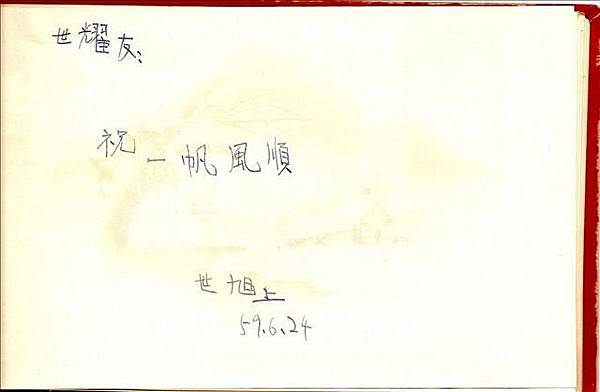 世耀友：
祝 一帆風順
世旭上
59.6.24